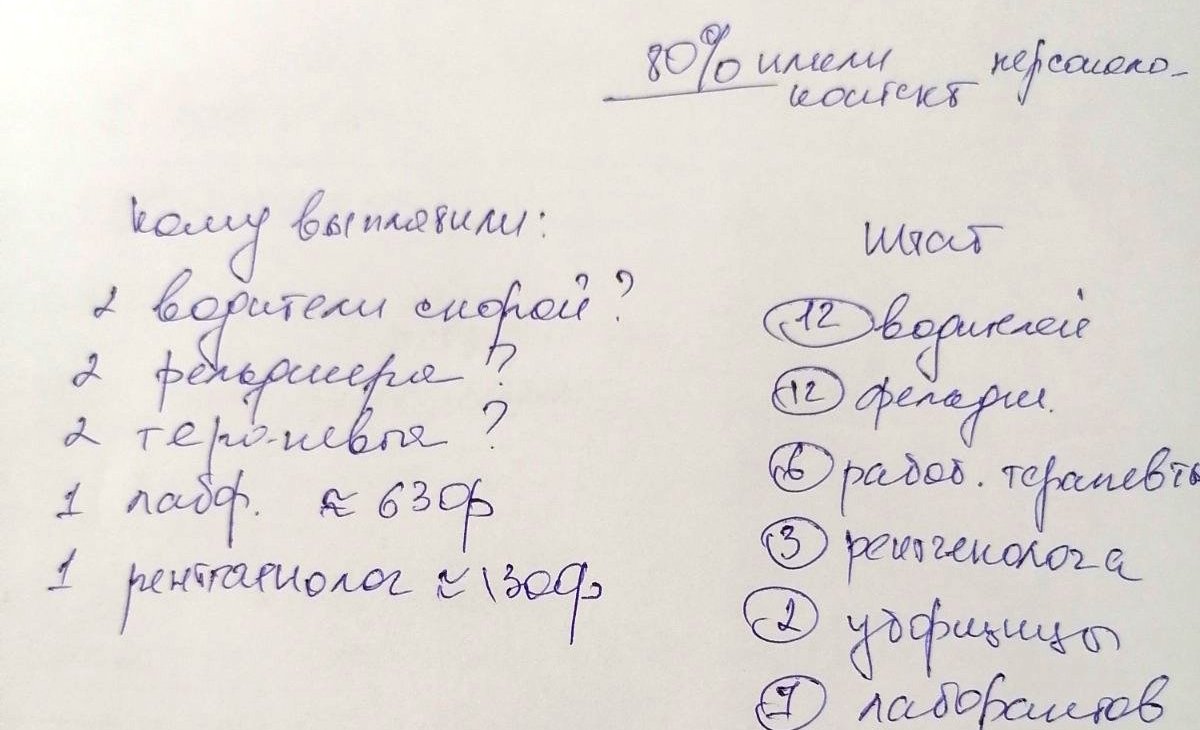 80% имели персонало-
контект
Кому выплатили:
2 водители скорой ?
2 фельдшера ?
2 терапевта ?
1 лабор. ≈ 630р
1 рентгенолог ≈ 130р
Штат
12 водителей
12 фельдш.
6 работ. терапевты
3 рентгенолога
2 уборщицы
7 лаборантов